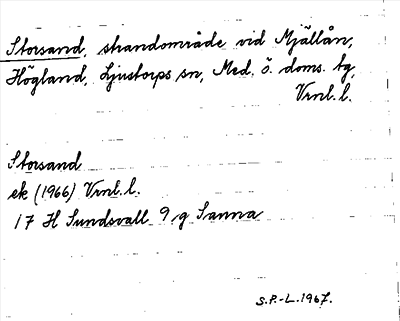 Storsand, strandområde vid Mjällån,
Högland, Ljustorps sn, Med. ö. doms. tg,
Vrnl. l.
Storsand
ek (1966) Vrnl. l.
17 H Sundsvall 9 g Sanna
S.P.-L. 1967.